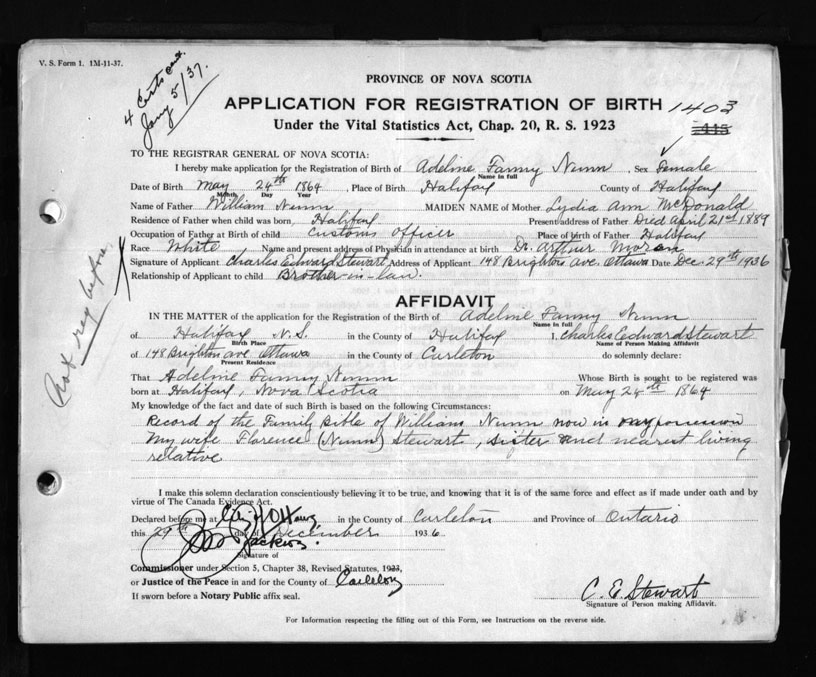 V. S. Form 1. 1M-11-37.
4 Certs
Jany 5/37.
PROVINCE OF NOVA SCOTIA
APPLICATION FOR REGISTRATION OF BIRTH 1403
Under the Vital Statistics Act, Chap. 20, R. S. 1923
TO THE REGISTRAR GENERAL OF NOVA SCOTIA:
I hereby make application for the Registration of Birth of Adeline Fanny Nunn, Sex Female
Name in full
Date of Birth May 24th 1864, Place of Birth Halifax County of Halifax
Month Day Year
Name of Father William Nunn MAIDEN NAME of Mother Lydia Ann McDonald
Residence of Father when child was born, Halifax Present address of Father Died April 21st 1889
Occupation of Father at Birth of child Customs Officer Place of birth of Father Halifax
Race White Name and present address of Physician in attendance at birth Dr. Arthur Moran
Signature of Applicant Charles Edward Stewart Address of Applicant 148 Brighton Ave. Ottawa Date Dec. 29th 1936
Relationship of Applicant to child Brother-in-law.
Not reg before.
AFFIDAVIT
IN THE MATTER of the application for the Registration of the Birth of Adeline Fanny Nunn
Name in full
of Halifax N.S. in the County of Halifax I, Charles Edward Stewart
Birth Place Name of Person Making Affidavit
of 148 Brighton Ave Ottawa in the County of Carleton do solemnly declare:
Present Residence
That Adeline Fanny Nunn Whose Birth is sought to be registered was
born at Halifax, Nova Scotia on May 24th 1864
My knowledge of the fact and date of such Birth is based on the following Circumstances:
Record of the Family Bible of William Nunn now in my possession
My wife Florence (Nunn) Stewart, sister and nearest living
relative
I make this solemn declaration conscientiously believing it to be true, and knowing that it is of the same force and effect as if made under oath and by
virtue of The Canada Evidence Act.
Declared before me at City of Ottawa in the County of Carleton and Province of Ontario
this 29th day of December 1936
Signature of
Commissioner under Section 5, Chapter 38, Revised Statutes, 1923,
or Justice of the Peace in and for the County of Carleton
If sworn before a Notary Public affix seal.
C. E. Stewart
Signature of Person making Affidavit.
For Information respecting the filling out of this Form, see Instructions on the reverse side.